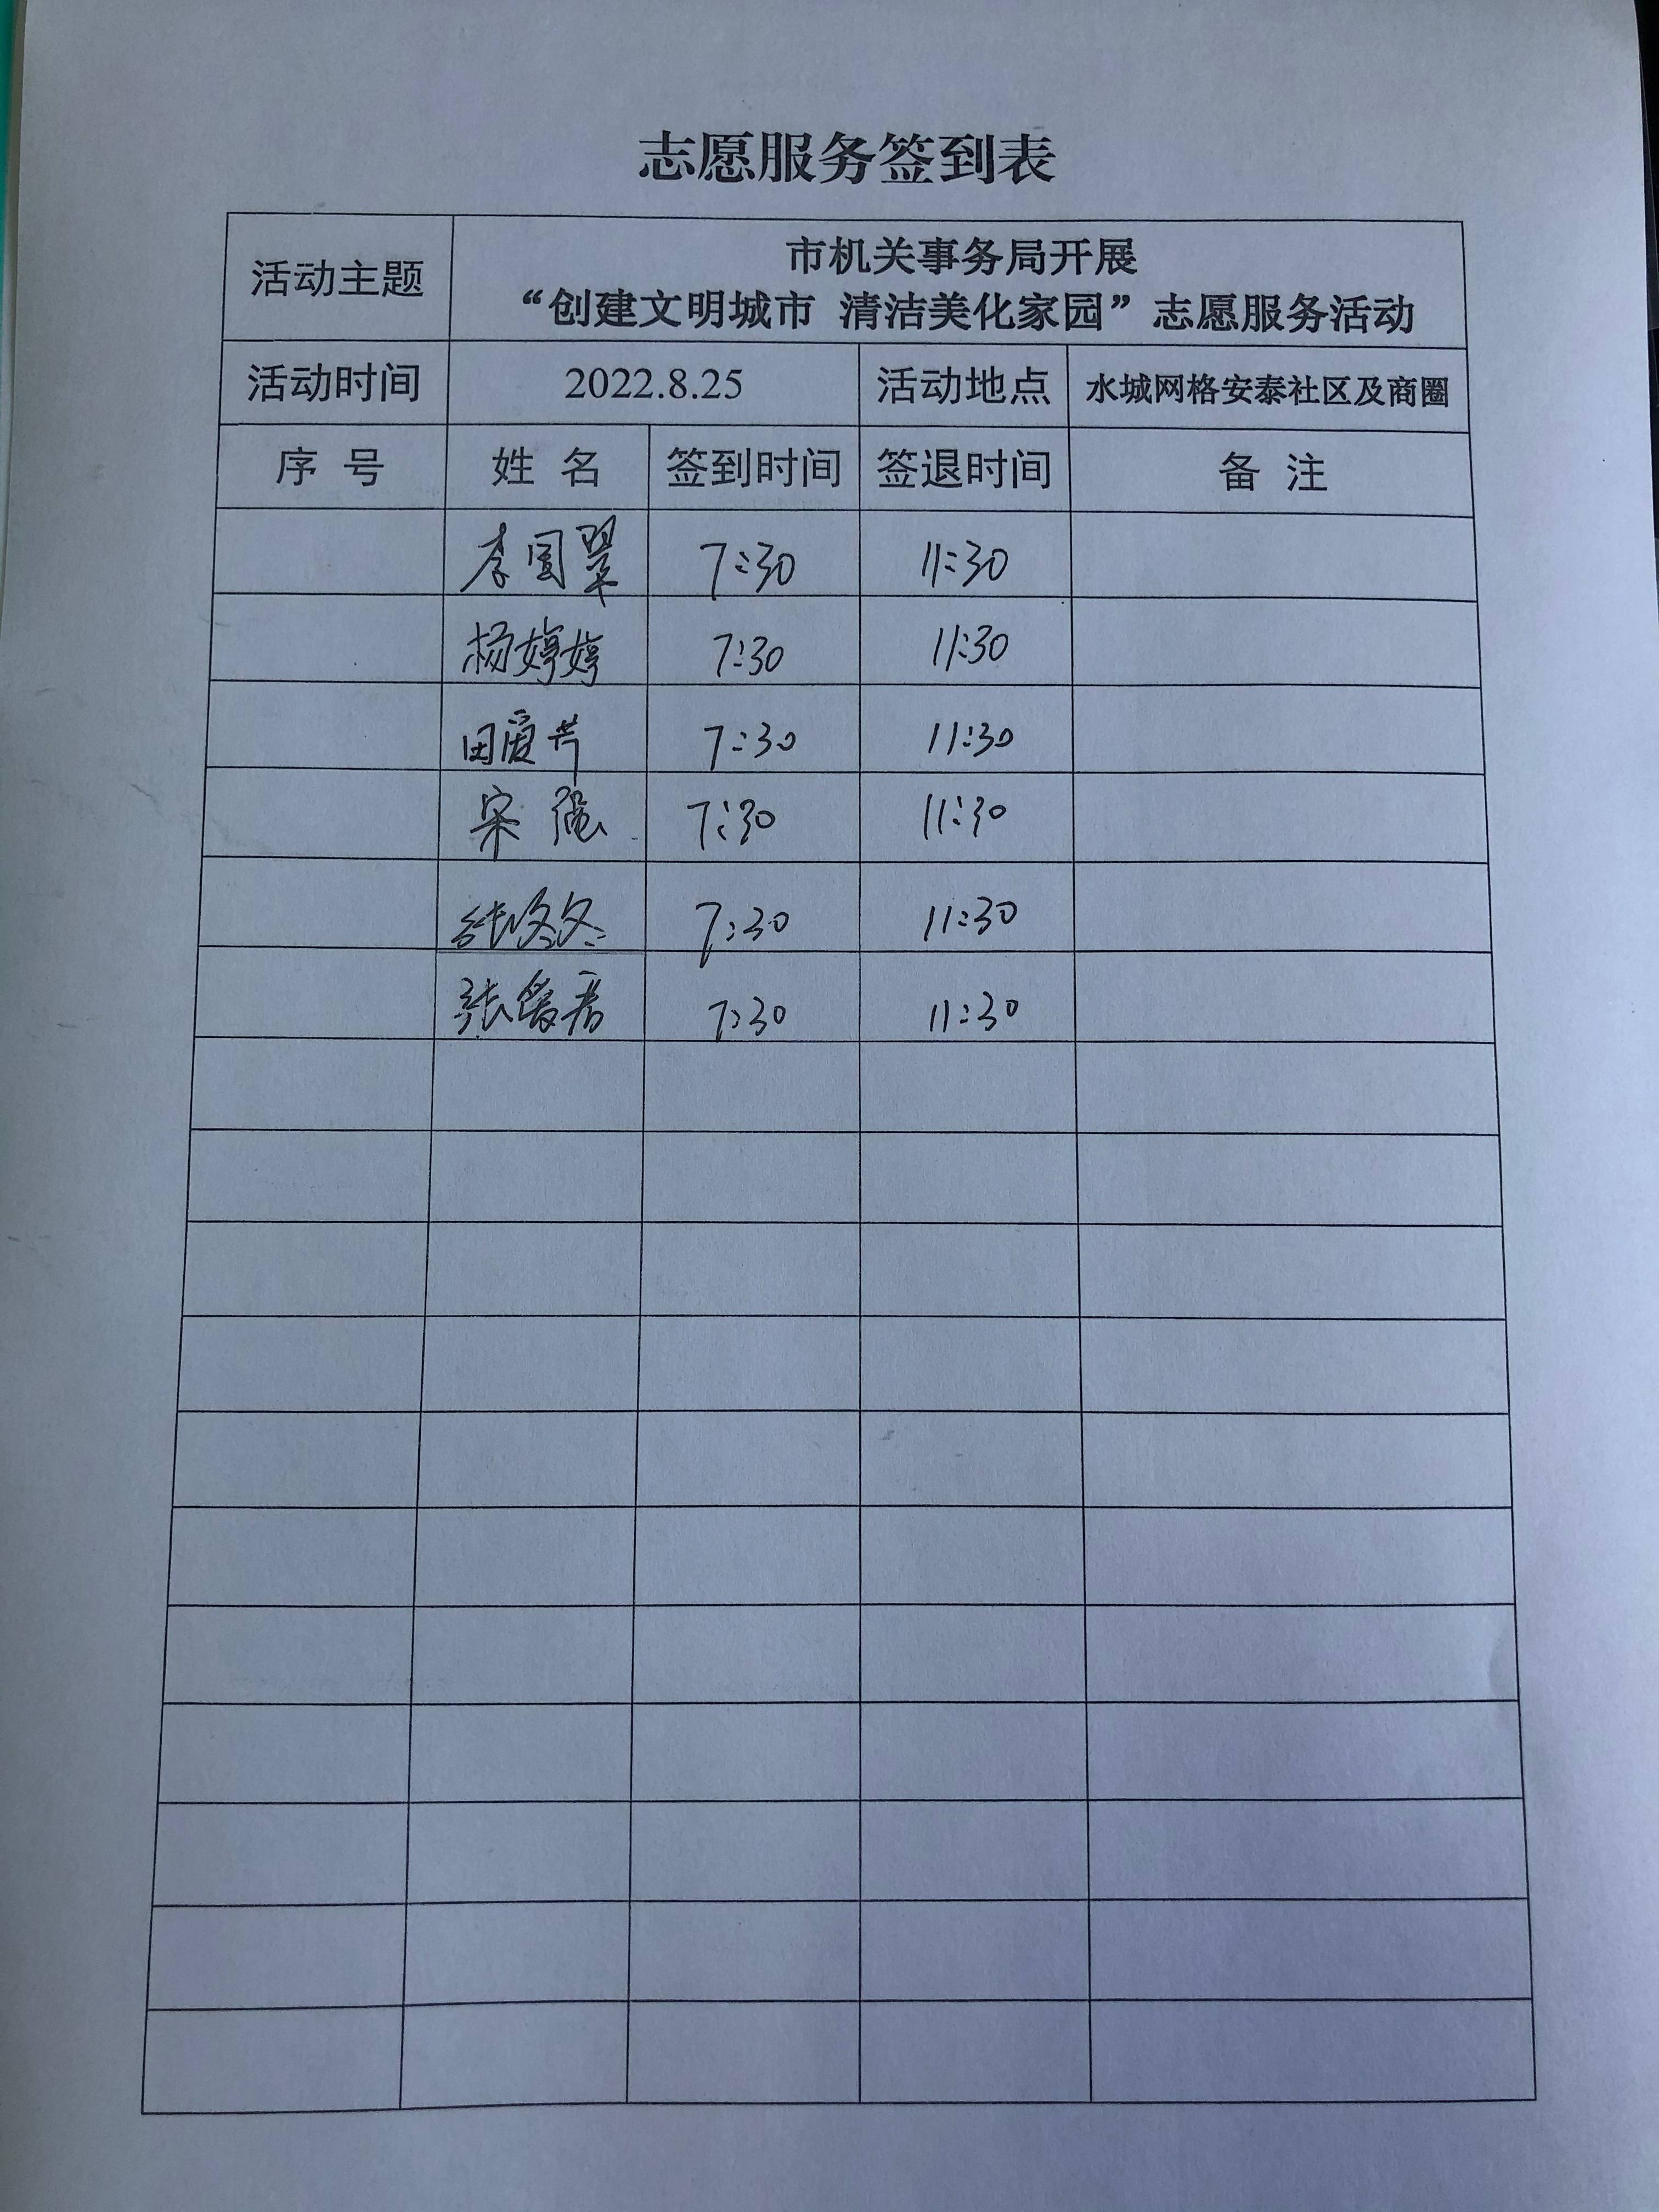 志愿服务签到表
活动主题
市机关事务局开展
“创建文明城市 清洁美化家园”志愿服务活动
活动时间 2022.8.25 活动地点 水城网格安泰社区及商圈
序 号 姓 名 签到时间 签退时间 备 注
李国翠 7:30 11:30
杨婷婷 7:30 11:30
田爱芹 7:30 11:30
宋 强 7:30 11:30
张冬冬 7:30 11:30
张爱君 7:30 11:30